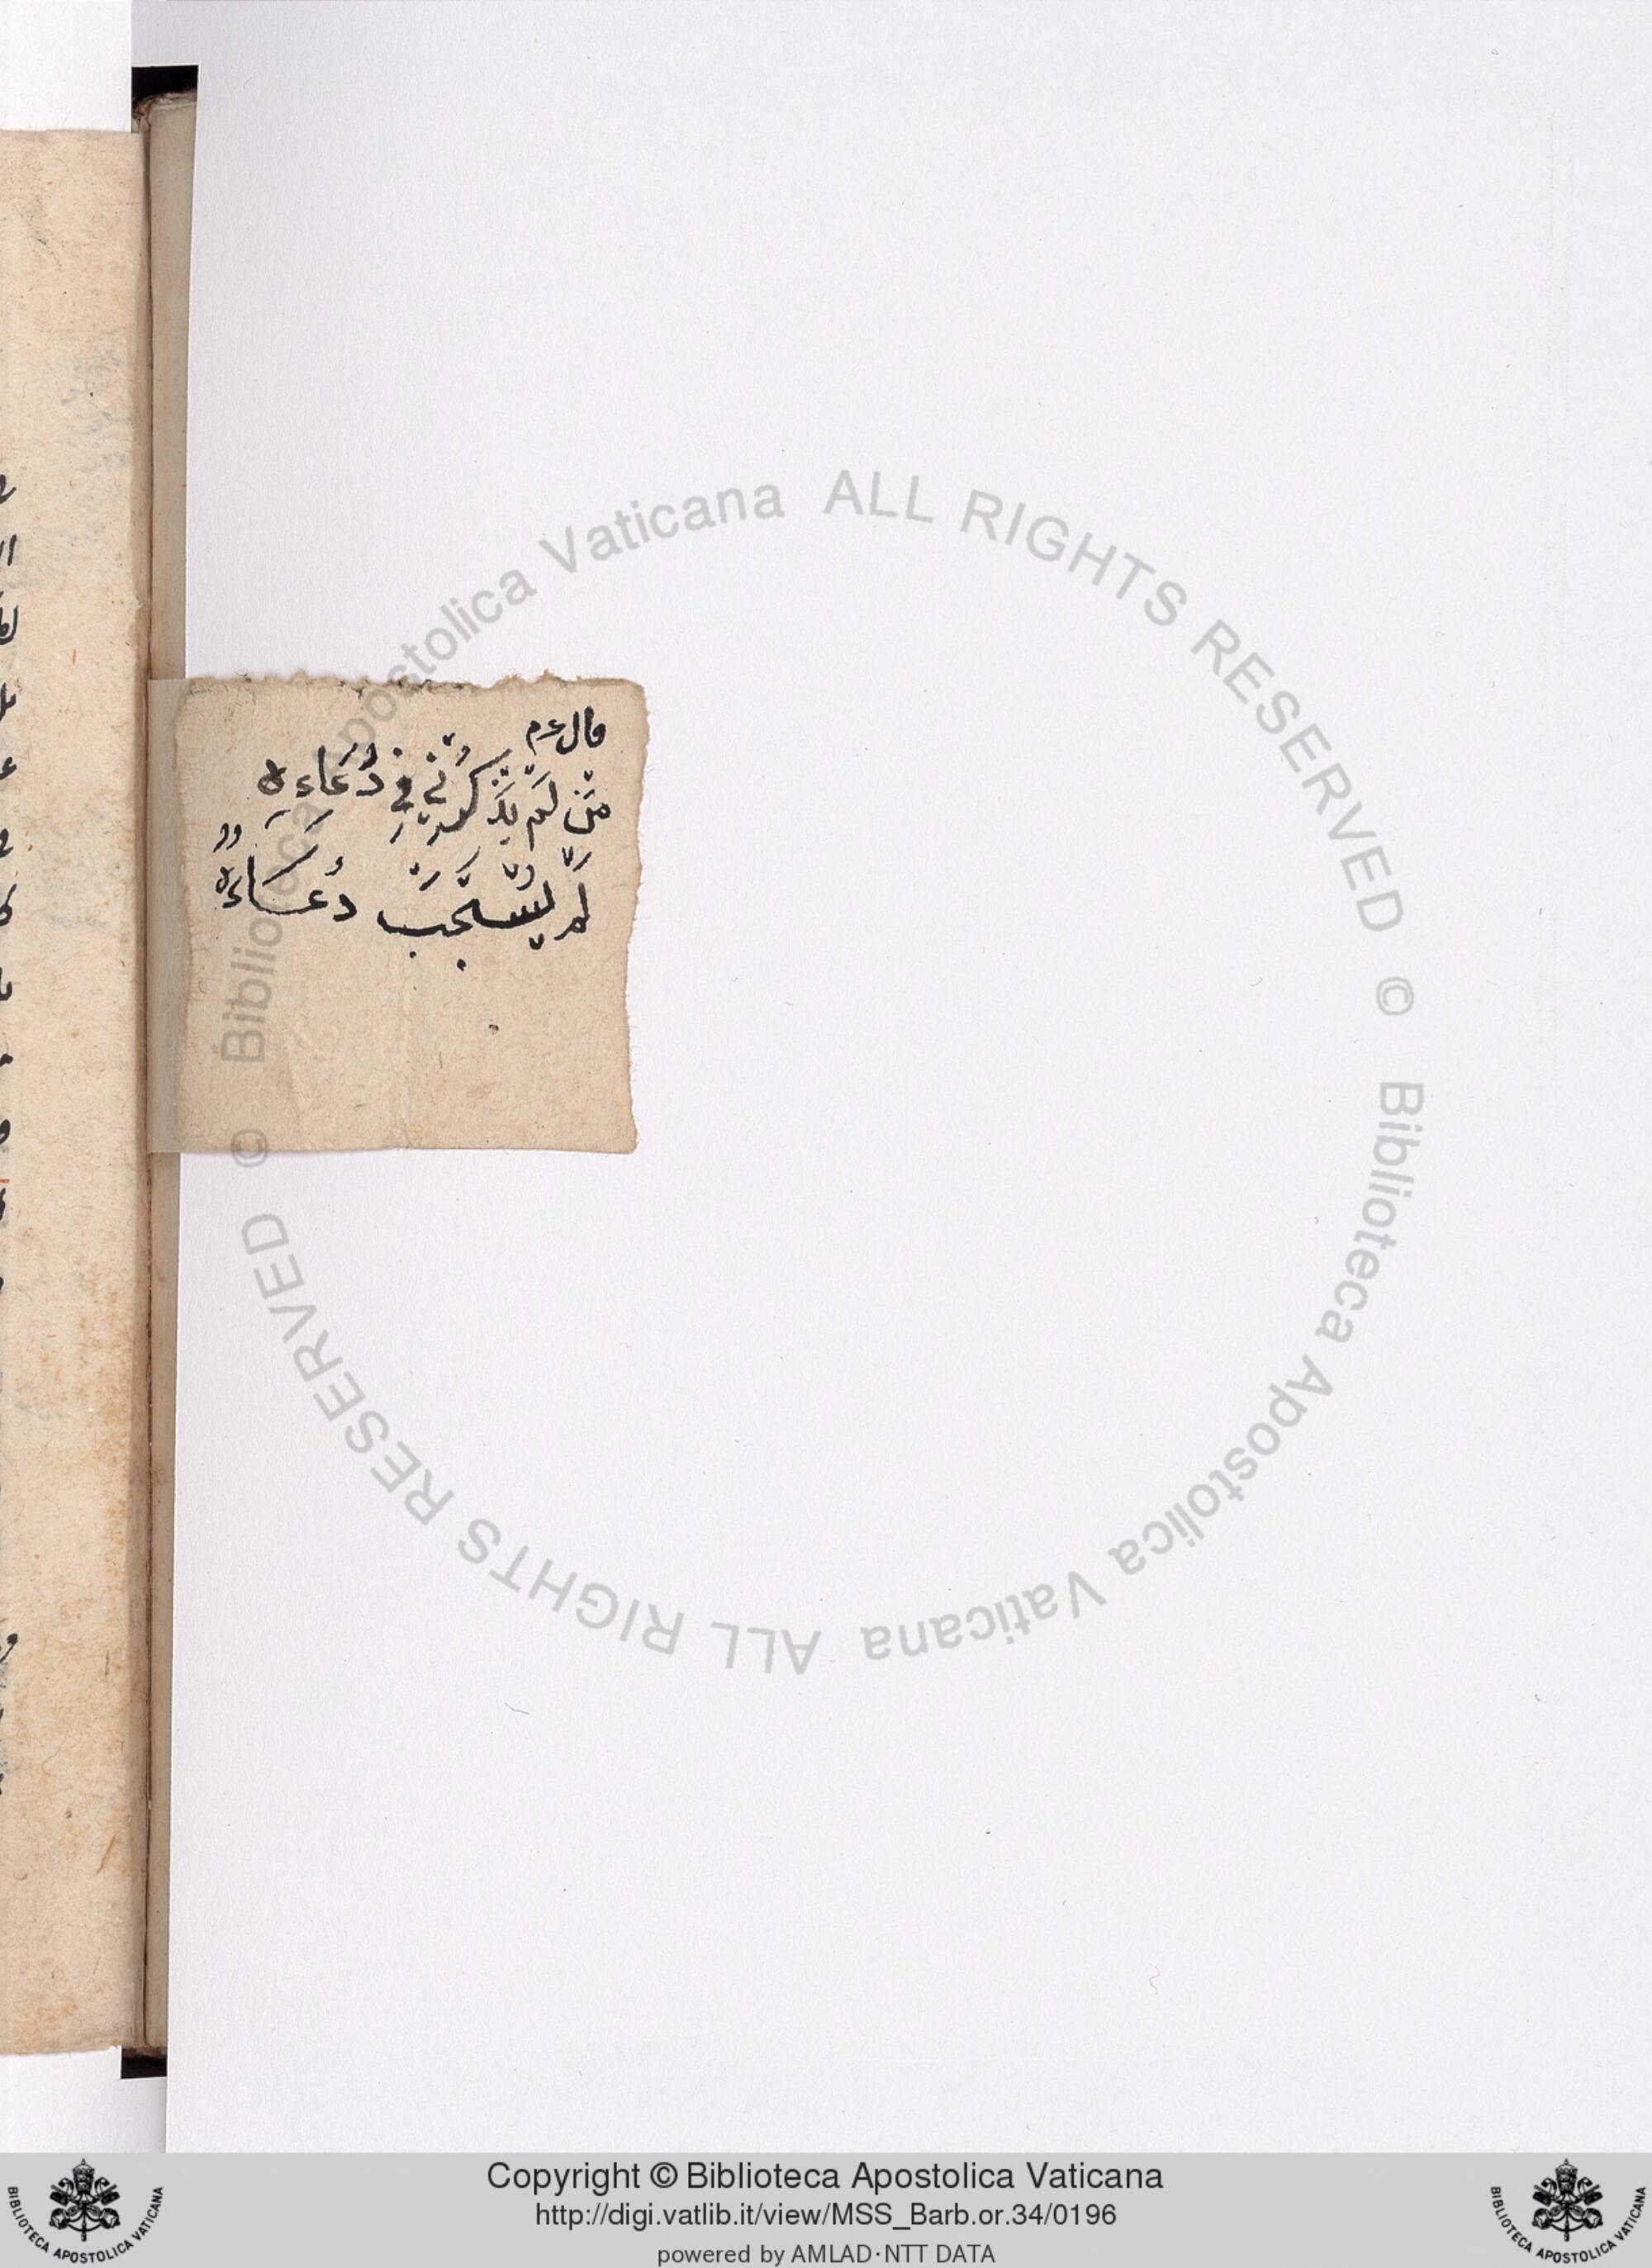 قال عم
مَنْ لَمْ يَذْكُرْنِي فِي دُعَاءِهِ
لَمْ يُسْتَجَبْ دُعَاءَهُ
© Biblioteca Apostolica Vaticana ALL RIGHTS RESERVED © Biblioteca Apostolica Vaticana ALL RIGHTS RESERVED
Copyright © Biblioteca Apostolica Vaticana
http://digi.vatlib.it/view/MSS_Barb.or.34/0196
powered by AMLAD·NTT DATA
BIBLIOTECA APOSTOLICA VATICANA
BIBLIOTECA APOSTOLICA VATICANA